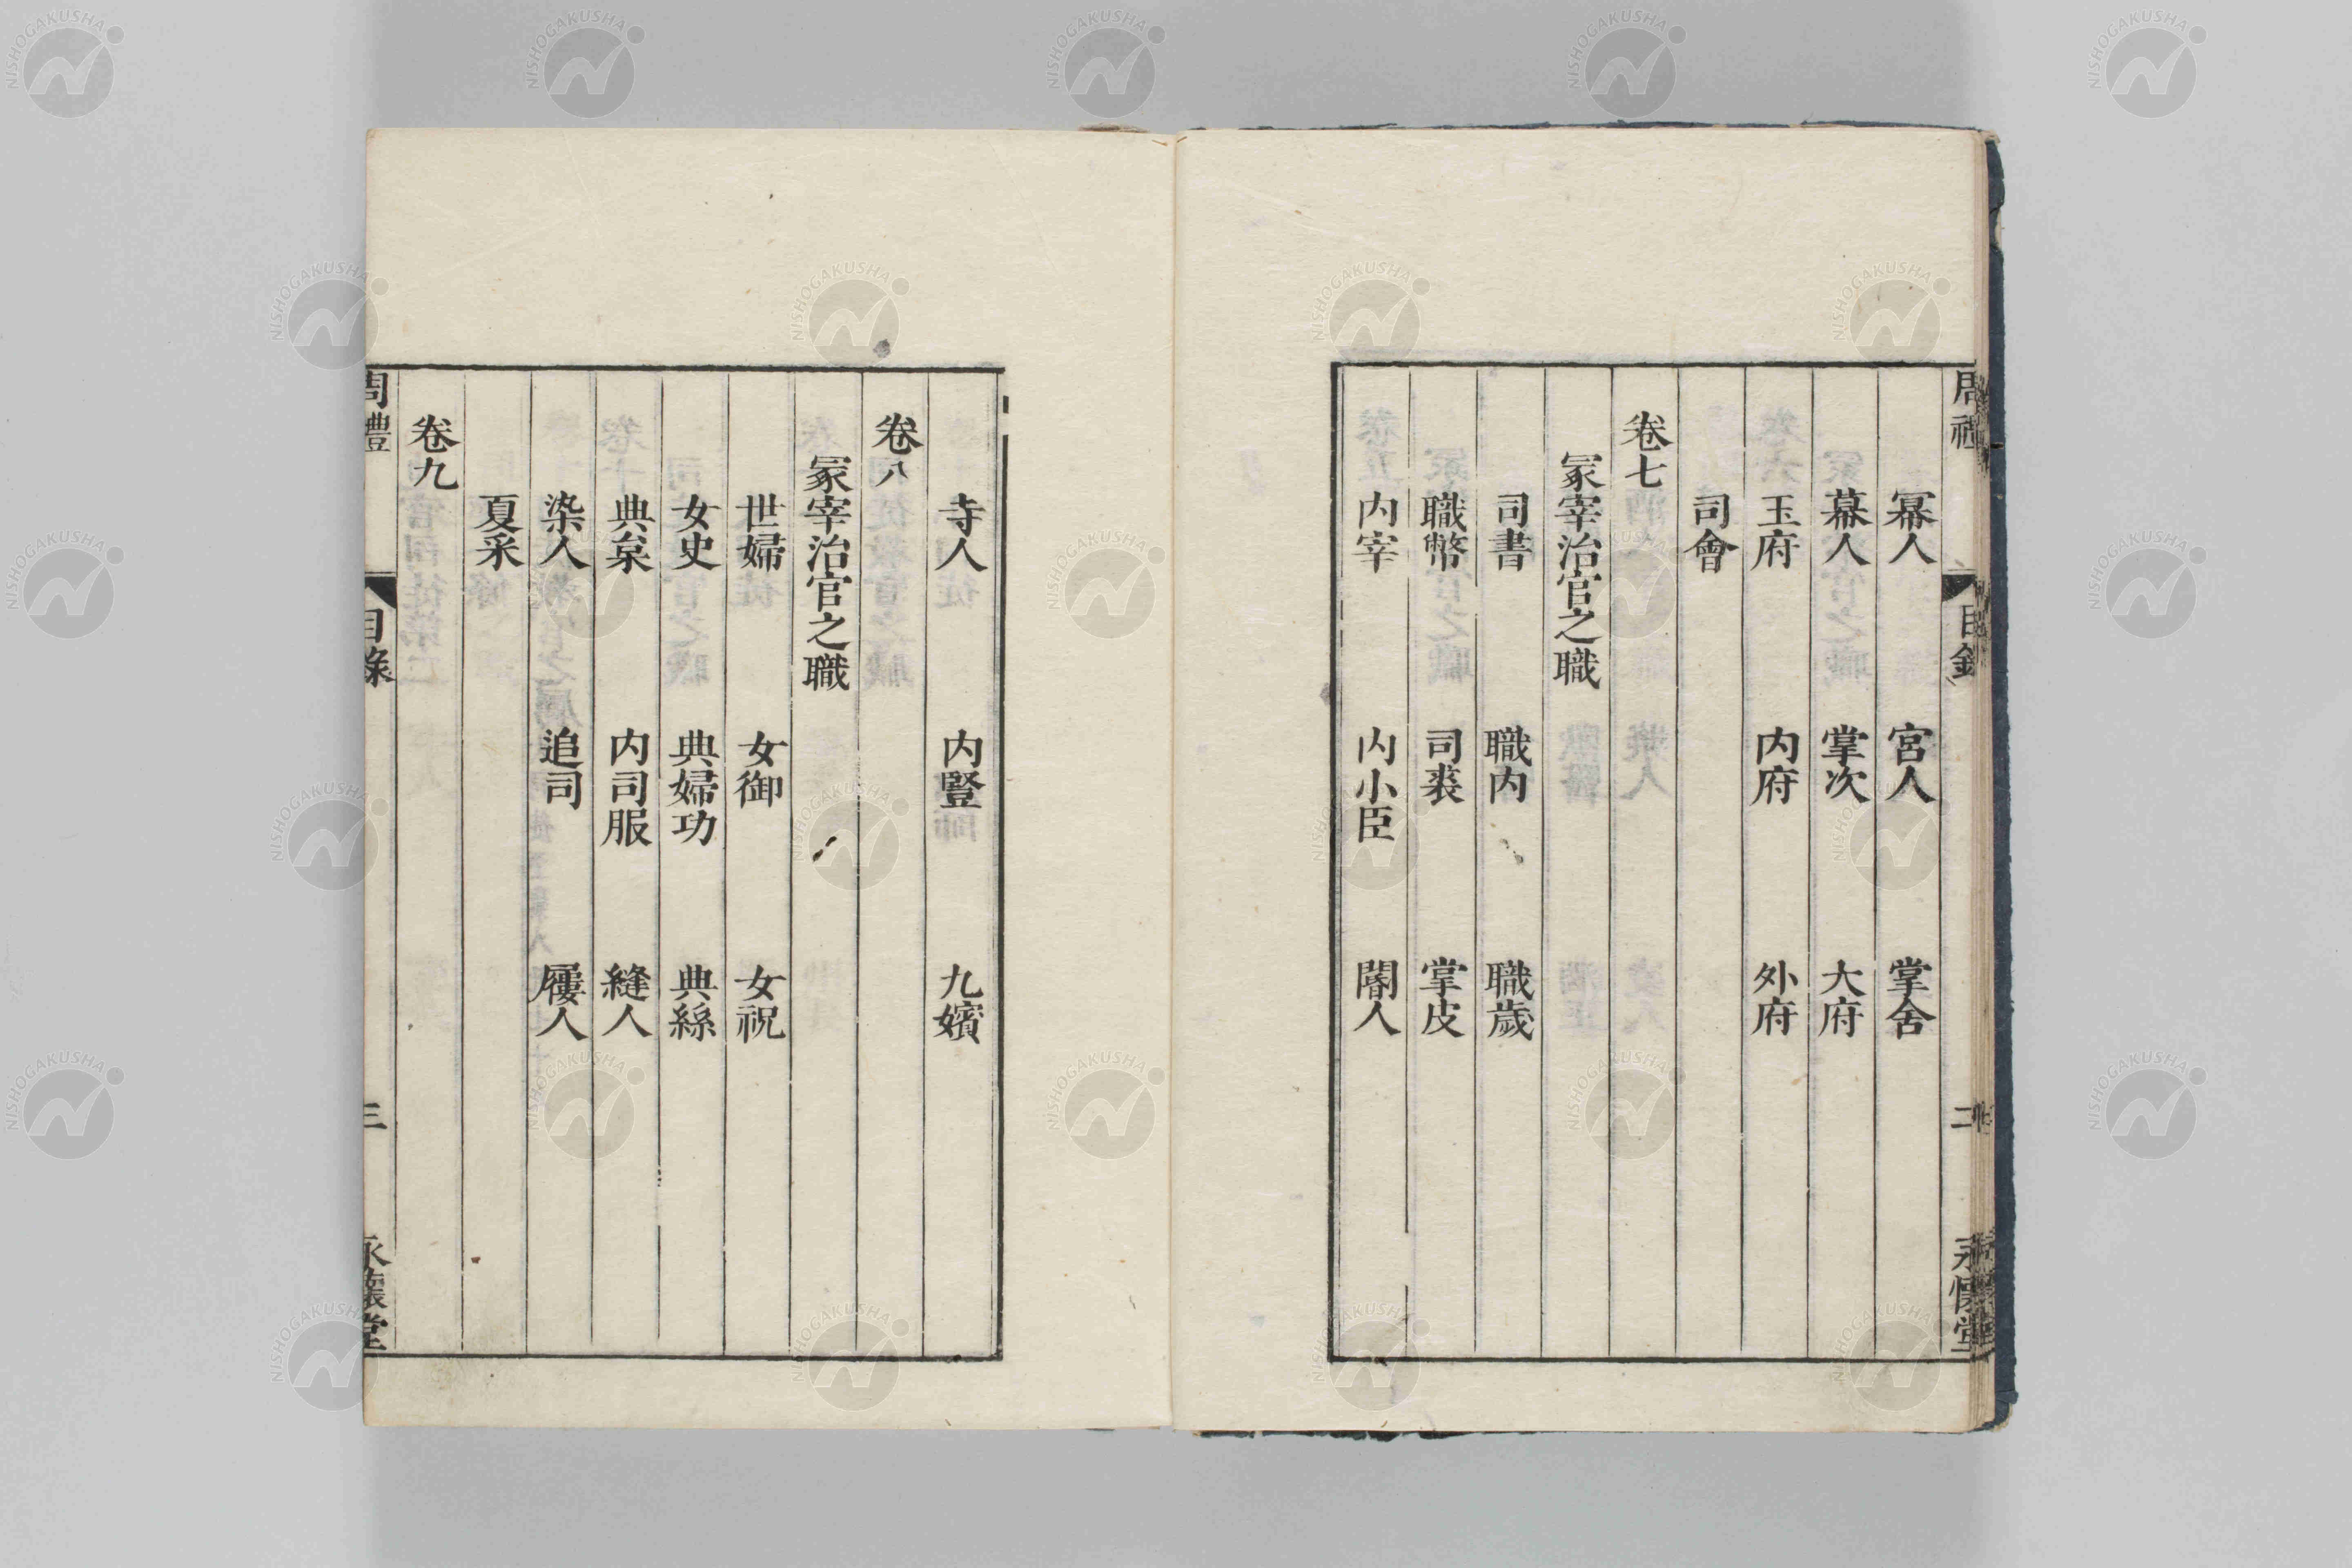 周禮 目錄 二 永懷堂
冪人 宮人 掌舍
幕人 掌次 大府
玉府 內府 外府
司會
卷七
冢宰治官之職
司書 職內 職歲
職幣 司裘 掌皮
內宰 內小臣 閽人
寺人 內豎 九嬪
卷八
冢宰治官之職
世婦 女御 女祝
女史 典婦功 典絲
典枲 內司服 縫人
染人 追司 屨人
夏采
卷九
周禮 目錄 三 永懷堂
NISHOGAKUSHA